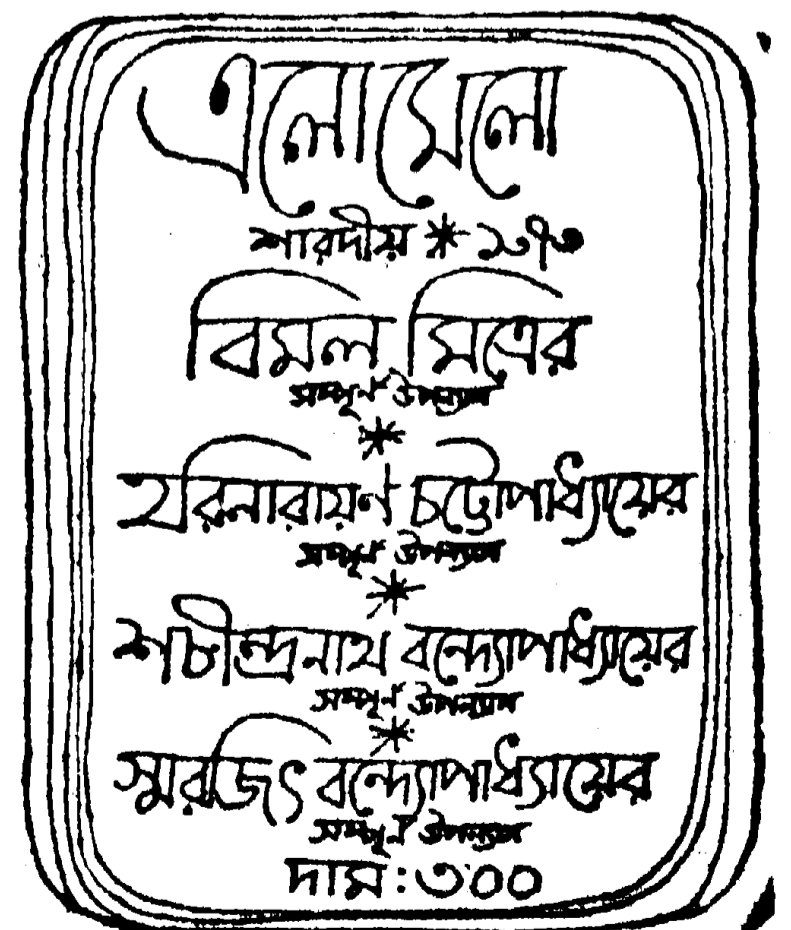 এলোমেলো
শারদীয় * ১৩৭৩
বিমল মিত্রের
সম্পূর্ণ উপন্যাস
*
হরিনারায়ণ চট্টোপাধ্যায়ের
সম্পূর্ণ উপন্যাস
*
শচীন্দ্রনাথ বন্দ্যোপাধ্যায়ের
সম্পূর্ণ উপন্যাস
*
স্মরজিৎ বন্দ্যোপাধ্যায়ের
সম্পূর্ণ উপন্যাস
দাম : ৩.০০